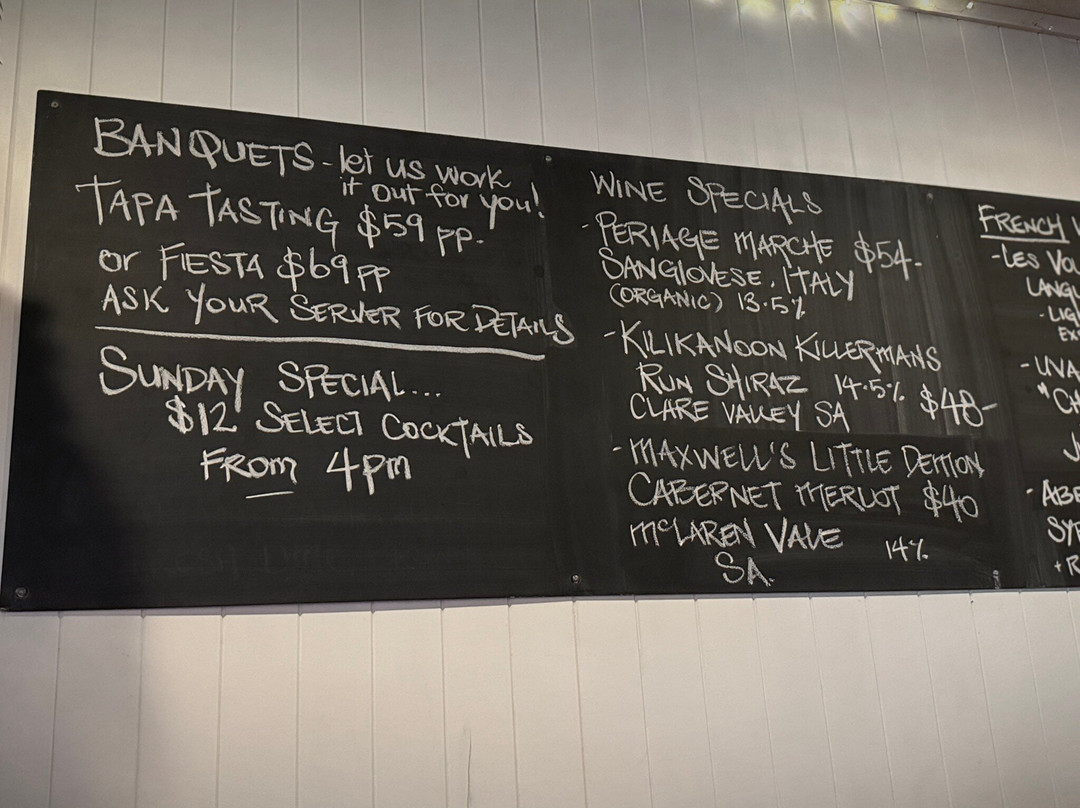 BANQUETS - let us work
it out for you!
TAPA TASTING $59 pp.
or FIESTA $69 pp
ASK YOUR SERVER FOR DETAILS
SUNDAY SPECIAL...
$12 SELECT COCKTAILS
FROM 4pm
WINE SPECIALS
- PERIAGE MARCHE $54-
SANGIOVESE, ITALY
(ORGANIC) 13.5%
- KILIKANOON KILLERMANS
RUN SHIRAZ 14.5% $48-
CLARE VALLEY SA
- MAXWELL'S LITTLE DEMON
CABERNET MERLOT $40
McLAREN VALE 14%
SA.
FRENCH
- LES
- LIG
EX
+ R